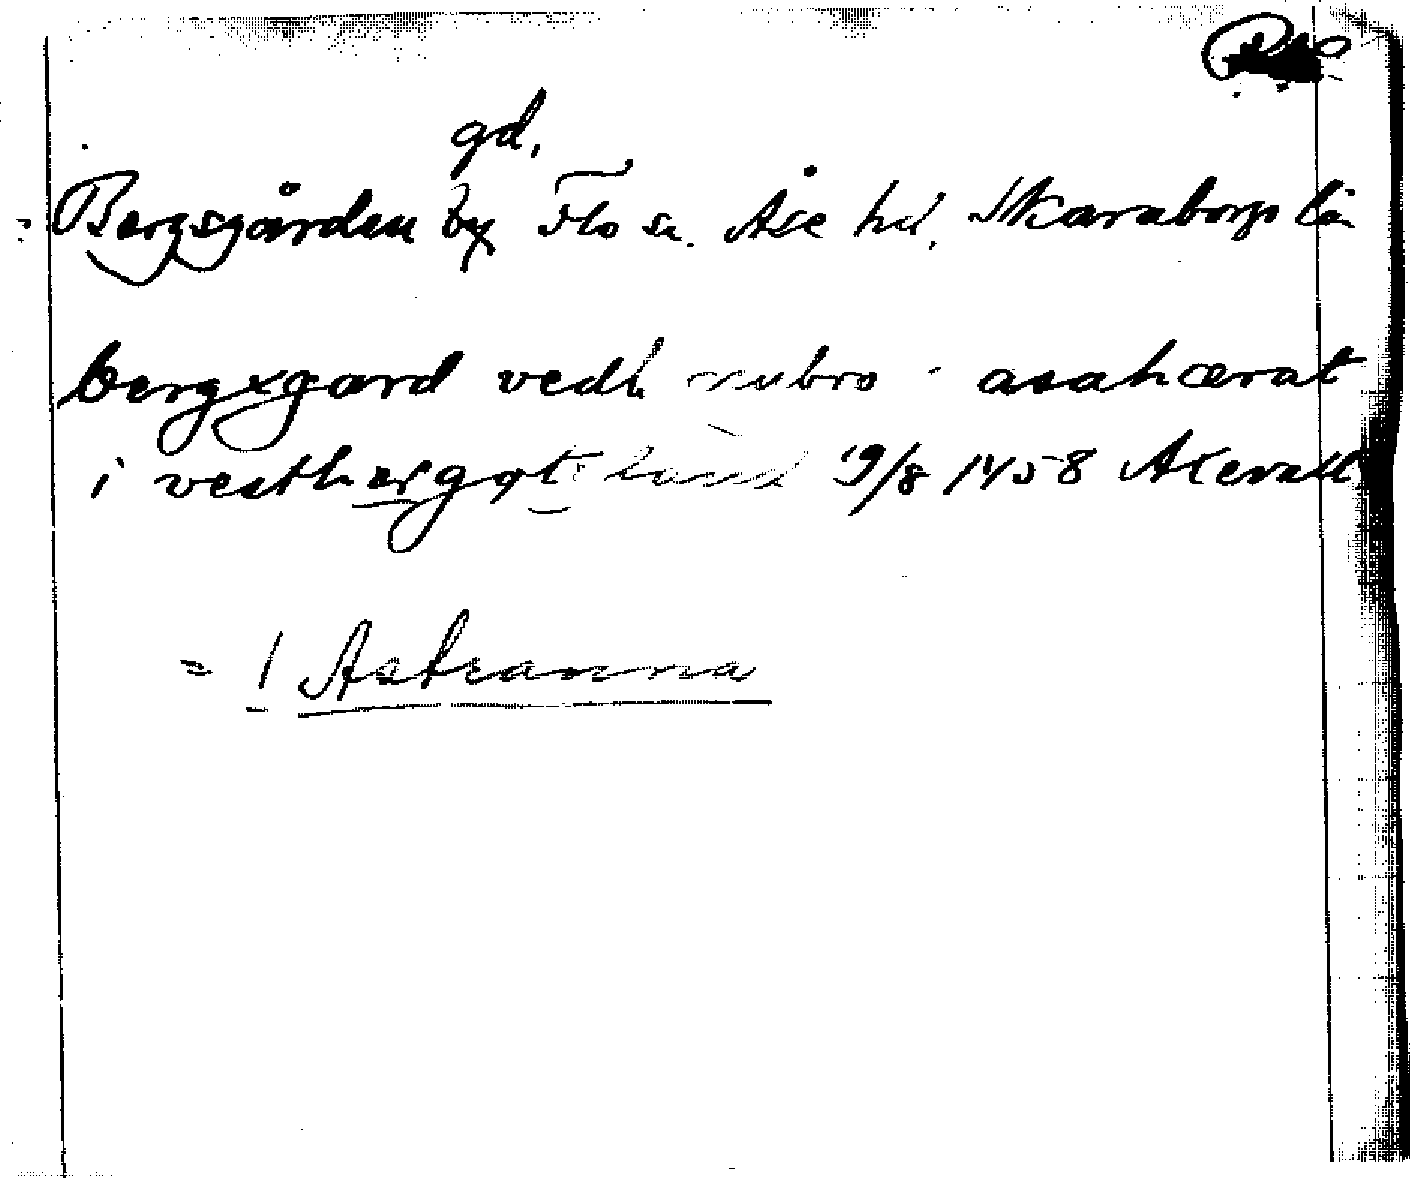 gd.
Bergsgården by Flo sn. Åse hd. Skaraborgs län
bergxgard vedh nubro i asahærat
i vesthergøtland 19/8 1458 Alevalt
= 1 Astranna